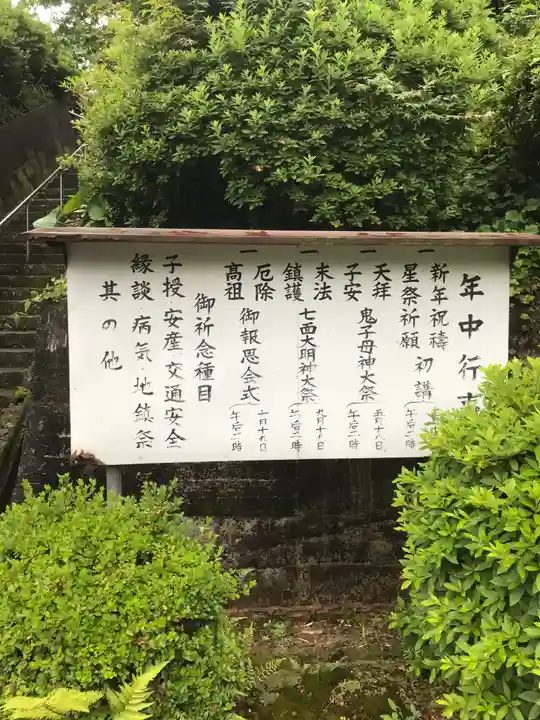 年中行
一 新年祝禱
星祭祈願 初講
午后二時
一 天拝
子安 鬼子母神大祭
五月十八日
午后二時
一 末法
鎮護 七面大明神大祭
九月十八日
午后二時
一 厄除
高祖 御報恩会式
十月十九日
午后二時
御祈念種目
子授・安産・交通安全
縁談・病気・地鎮祭
其の他